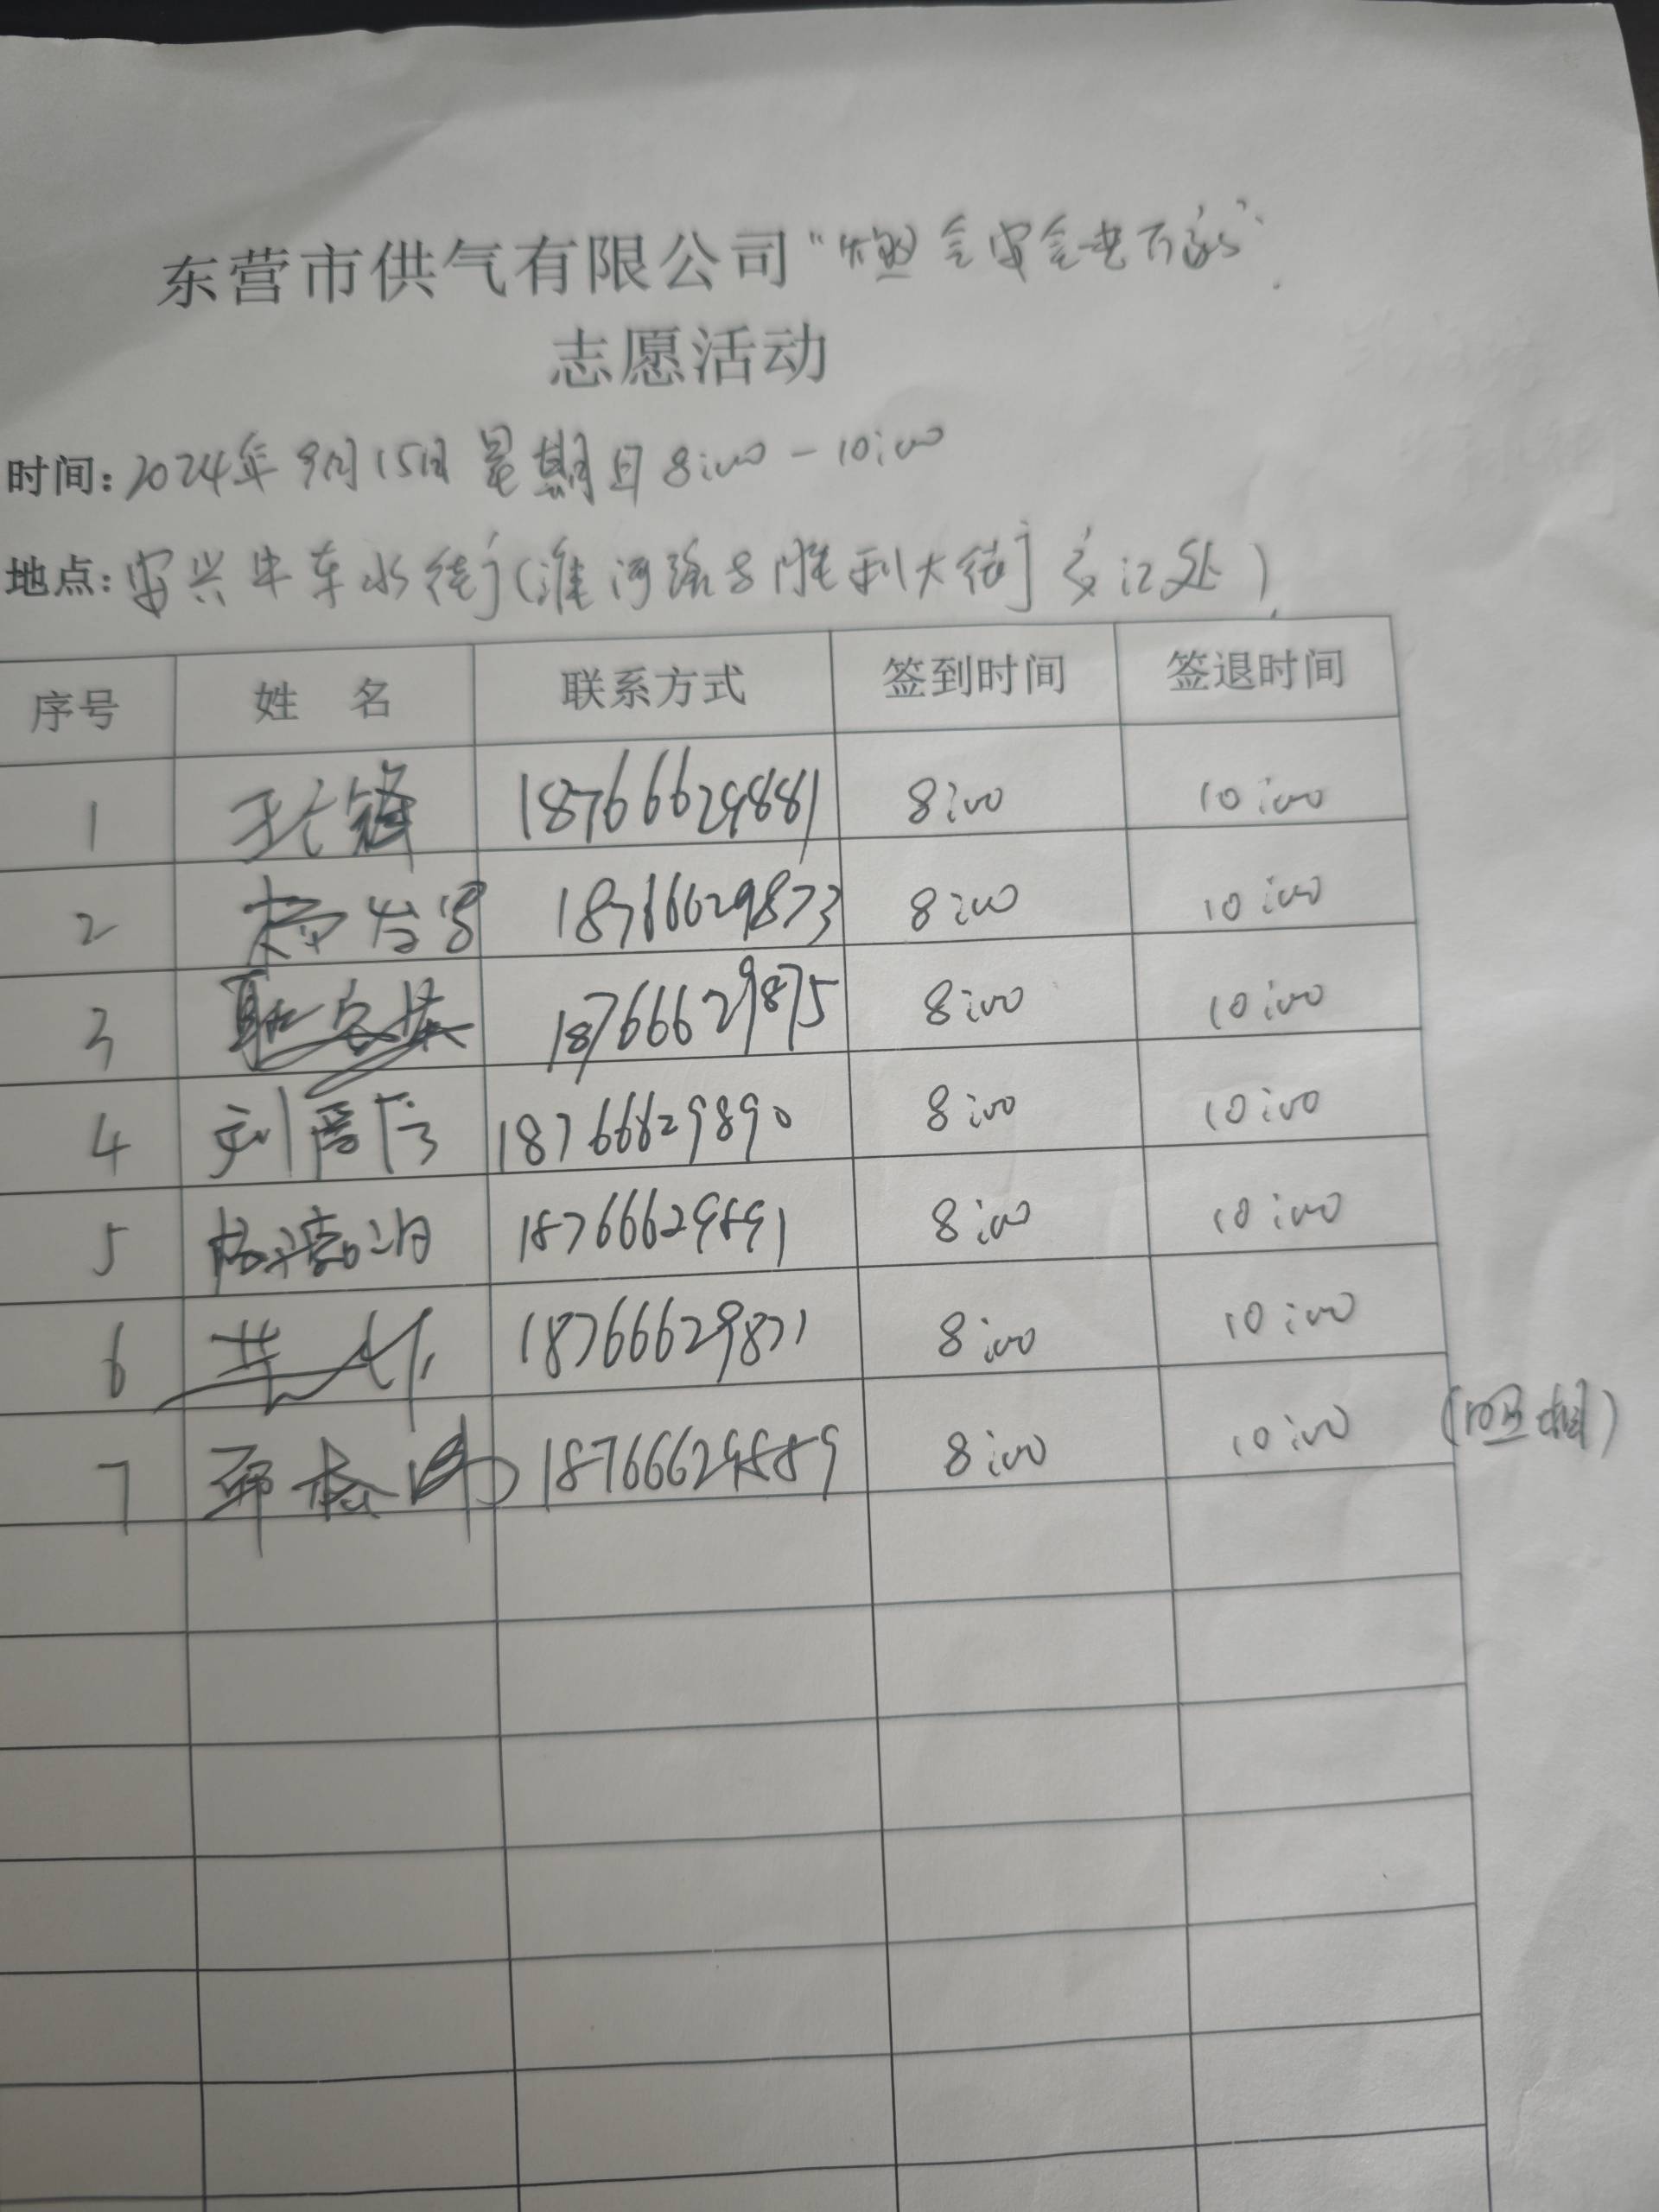 东营市供气有限公司“燃气安全进万家”
志愿活动
时间：2024年9月15日 星期日 8:00-10:00
地点：安兴牛车水街(淮河路与胜利大街交汇处)
序号 姓 名 联系方式 签到时间 签退时间
1 18766629881 8:00 10:00
2 18766629873 8:00 10:00
3 18766629875 8:00 10:00
4 18766629890 8:00 10:00
5 18766629891 8:00 10:00
6 18766629871 8:00 10:00
7 18766629889 8:00 10:00